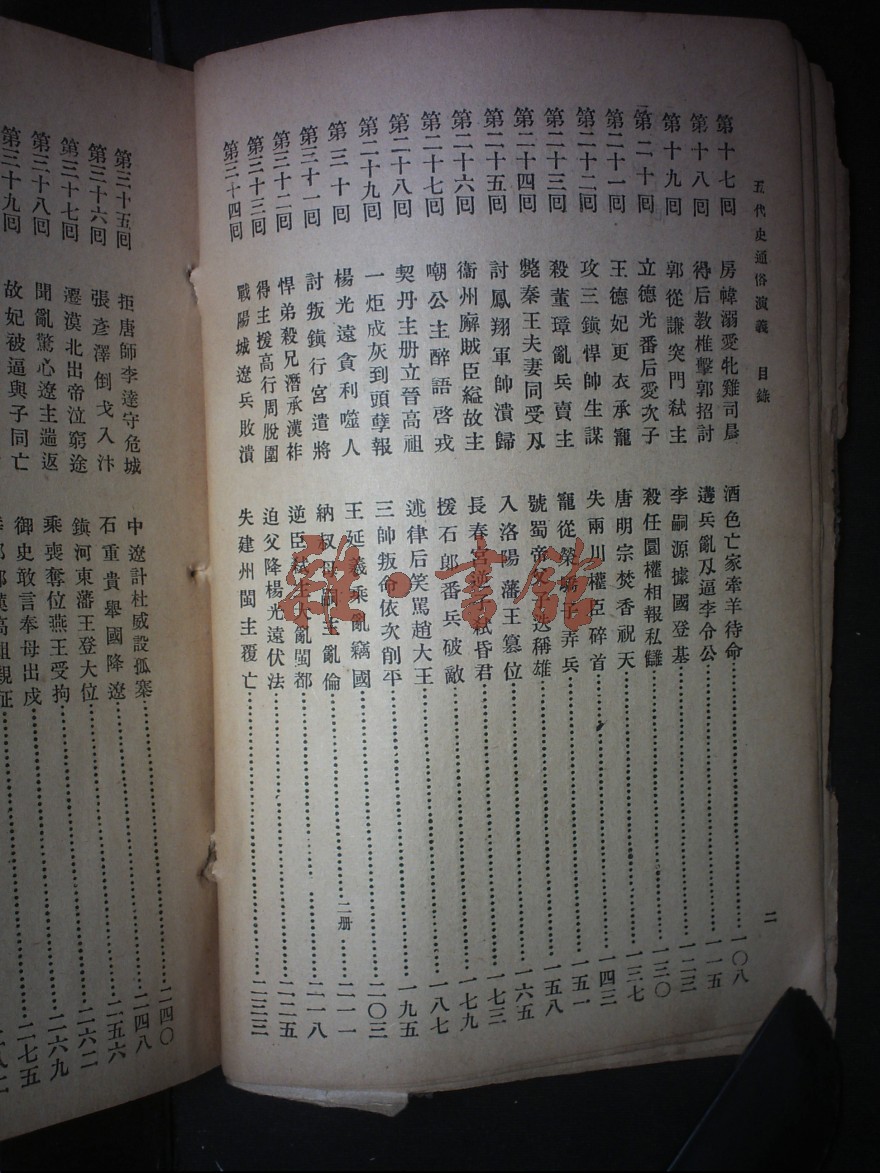 五代史通俗演義 目錄
二
第十七回 房幃溺愛牝雞司晨 酒色亡家牽羊待命 一〇八
第十八回 得后教椎擊郭招討 遘兵亂刄逼李令公 一一五
第十九回 郭從謙突門弑主 李嗣源據國登基 一二三
第二十回 立德光番后愛次子 殺任圜權相報私讎 一三〇
第二十一回 王德妃更衣承寵 唐明宗焚香祝天 一三七
第二十二回 攻三鎮悍帥生謀 失兩川權臣碎首 一四三
第二十三回 殺董璋亂兵賣主 寵從榮驕子弄兵 一五一
第二十四回 斃秦王夫妻同受刄 號蜀帝父子迭稱雄 一五八
第二十五回 討鳳翔軍帥潰歸 入洛陽藩王篡位 一六五
第二十六回 衞州廨賊臣縊故主 長春宮逆子弑昏君 一七三
第二十七回 嘲公主醉語啓戎 援石郎番兵破敵 一七九
第二十八回 契丹主册立晉高祖 述律后笑罵趙大王 一八七
第二十九回 一炬成灰到頭孽報 三帥叛命依次削平 一九五
第三十回 楊光遠貪利噬人 王延羲乘亂竊國 二〇三
第三十一回 討叛鎮行宮遣將 納叔母嗣主亂倫 二册 二一一
第三十二回 悍弟殺兄潛承漢祚 逆臣弑主大亂閩都 二一八
第三十三回 得主援高行周脫圍 迫父降楊光遠伏法 二二五
第三十四回 戰陽城遼兵敗潰 失建州閩主覆亡 二三三
第三十五回 拒唐師李達守危城 中遼計杜威設孤寨 二四〇
第三十六回 張彥澤倒戈入汴 石重貴舉國降遼 二四八
第三十七回 遷漠北出帝泣窮途 鎮河東藩王登大位 二五六
第三十八回 聞亂驚心遼主遄返 乘喪奪位燕王受拘 二六二
第三十九回 故妃被逼與子同亡 御史敢言奉母出戍 二六九
漢高祖親征 二七五
雜·書館